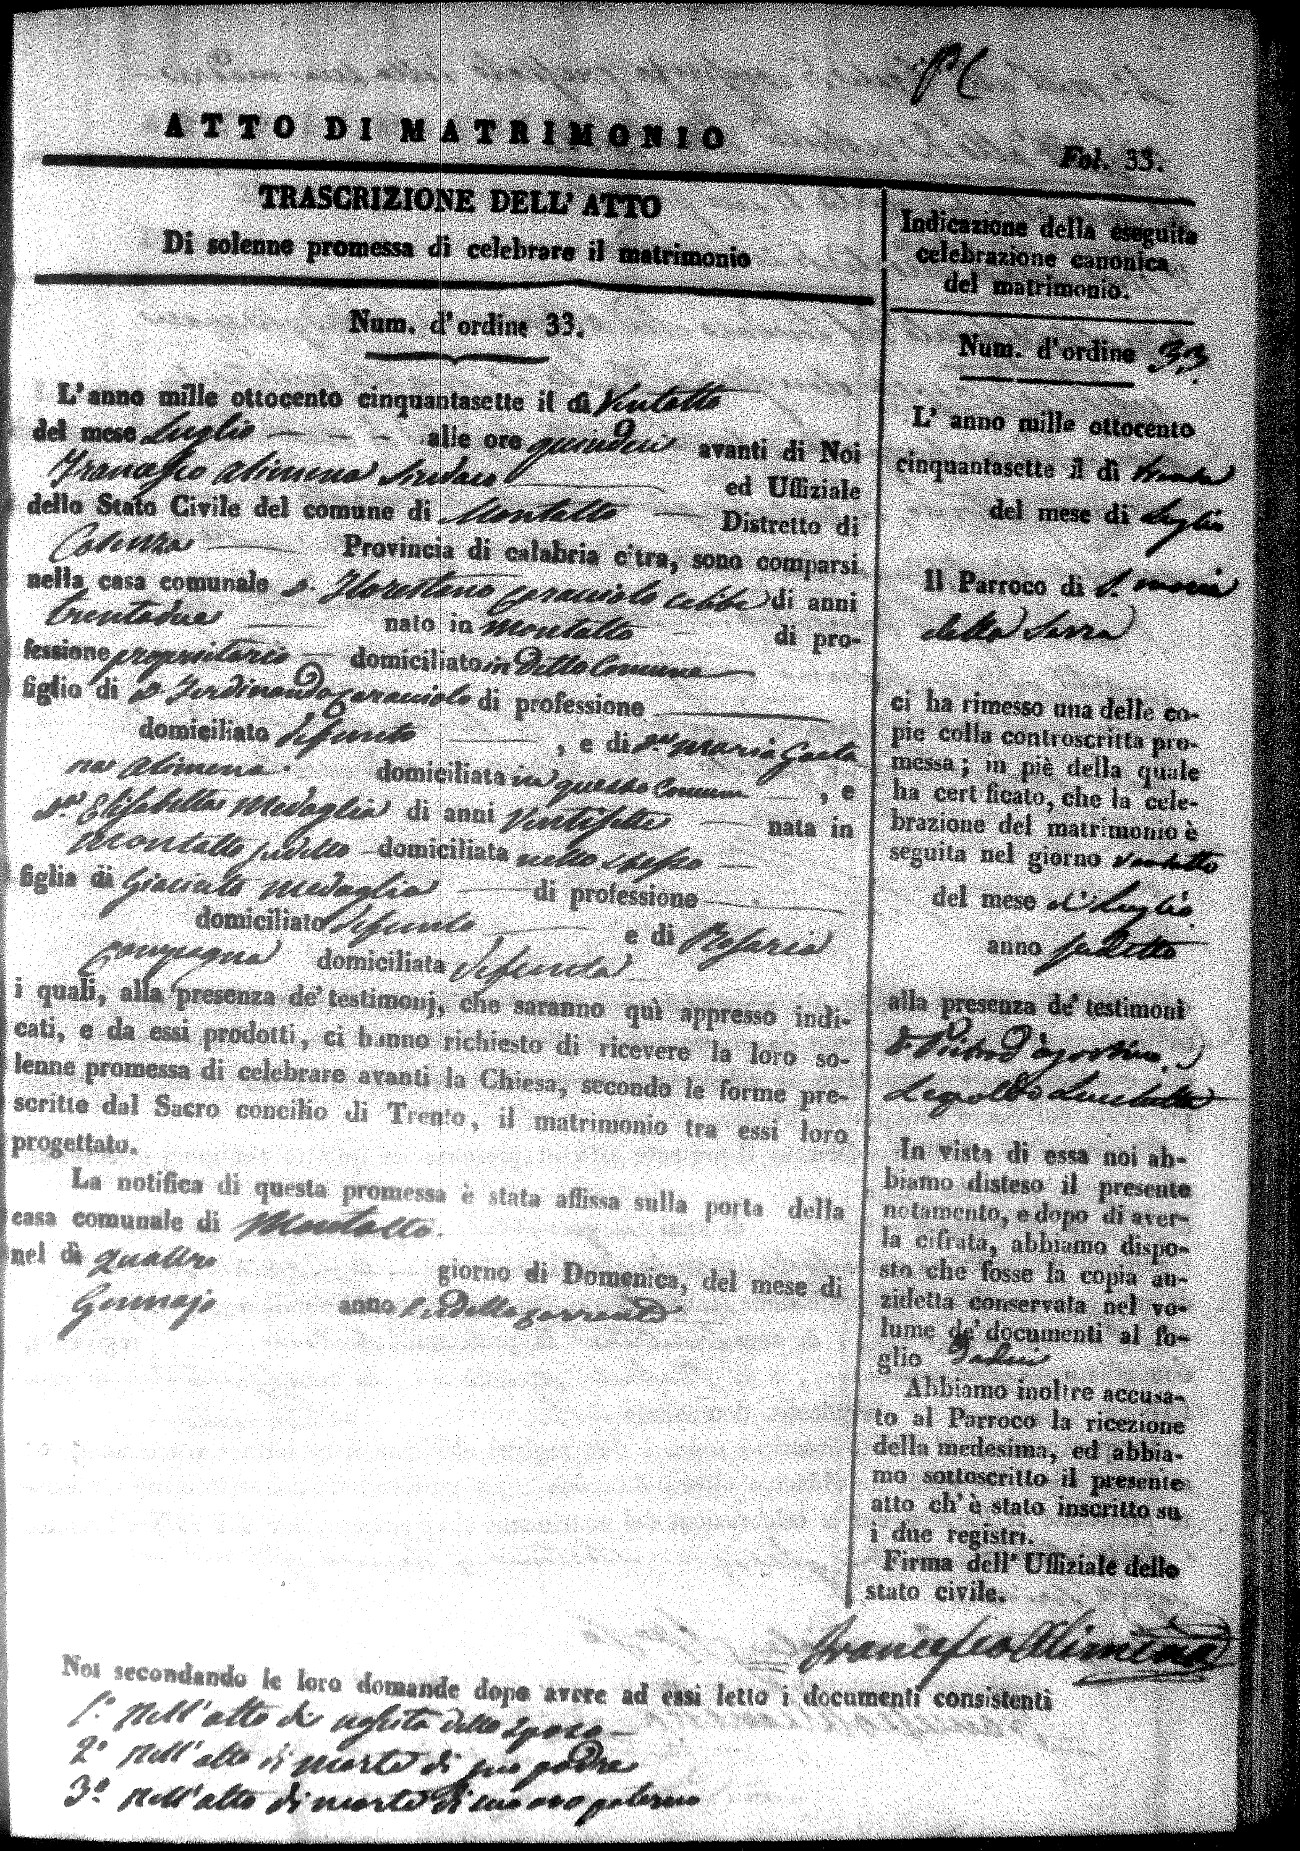 ATTO DI MATRIMONIO
Fol. 33.
TRASCRIZIONE DELL' ATTO
Di solenne promessa di celebrare il matrimonio
Num. d'ordine 33.
L'anno mille ottocento cinquantasette il dì Ventotto
del mese Luglio alle ore quindici avanti di Noi
Francesco Alimena Sindaco ed Uffiziale
dello Stato Civile del comune di Montalto Distretto di
Cosenza Provincia di calabria citra, sono comparsi
nella casa comunale D. Florestano Caracciolo di anni
trentadue nato in Montalto di pro-
fessione proprietario domiciliato in detto Comune
figlio di D. Ferdinando Caracciolo di professione
domiciliato defunto , e di D.na Maria Gaeta
na Alimena domiciliata in questo Comune , e
D.na Elisabetta Medaglia di anni Ventisette nata in
Montalto suddetto domiciliata nello stesso
figlia di Giacinto Medaglia di professione
domiciliato defunto e di Rosaria
domiciliata defunta
i quali, alla presenza de' testimonj, che saranno quì appresso indi-
cati, e da essi prodotti, ci hanno richiesto di ricevere la loro so-
lenne promessa di celebrare avanti la Chiesa, secondo le forme pre-
scritte dal Sacro concilio di Trento, il matrimonio tra essi loro
progettato.
La notifica di questa promessa è stata affissa sulla porta della
casa comunale di Montalto.
nel dì quattro giorno di Domenica, del mese di
Gennajo anno suddetto corrente
Indicazione della eseguita
celebrazione canonica
del matrimonio.
Num. d'ordine 33.
L' anno mille ottocento
cinquantasette il dì trenta
del mese di Luglio
Il Parroco di S. Maria
della Serra
ci ha rimesso una delle co-
pie colla controscritta pro-
messa; in piè della quale
ha cert ficato, che la cele-
brazione del matrimonio è
seguita nel giorno ventotto
del mese di Luglio
anno suddetto
alla presenza de' testimoni
D. Pietro d'Agostino
Leopoldo
In vista di essa noi ab-
biamo disteso il presente
notamento, e dopo di aver-
la cifrata, abbiamo dispo-
sto che fosse la copia an-
zidetta conservata nel vo-
lume de' documenti al fo-
glio
Abbiamo inoltre accusa-
to al Parroco la ricezione
della medesima, ed abbia-
mo sottoscritto il presente
atto ch' è stato inscritto su
i due registri.
Firma dell' Uffiziale dello
stato civile.
Francesco Alimena
Noi secondando le loro domande dopo avere ad essi letto i documenti consistenti
1.° Nell'atto di nascita dello sposo
2.° Nell'atto di morte di suo padre
3.° Nell'atto di morte di suo avo paterno